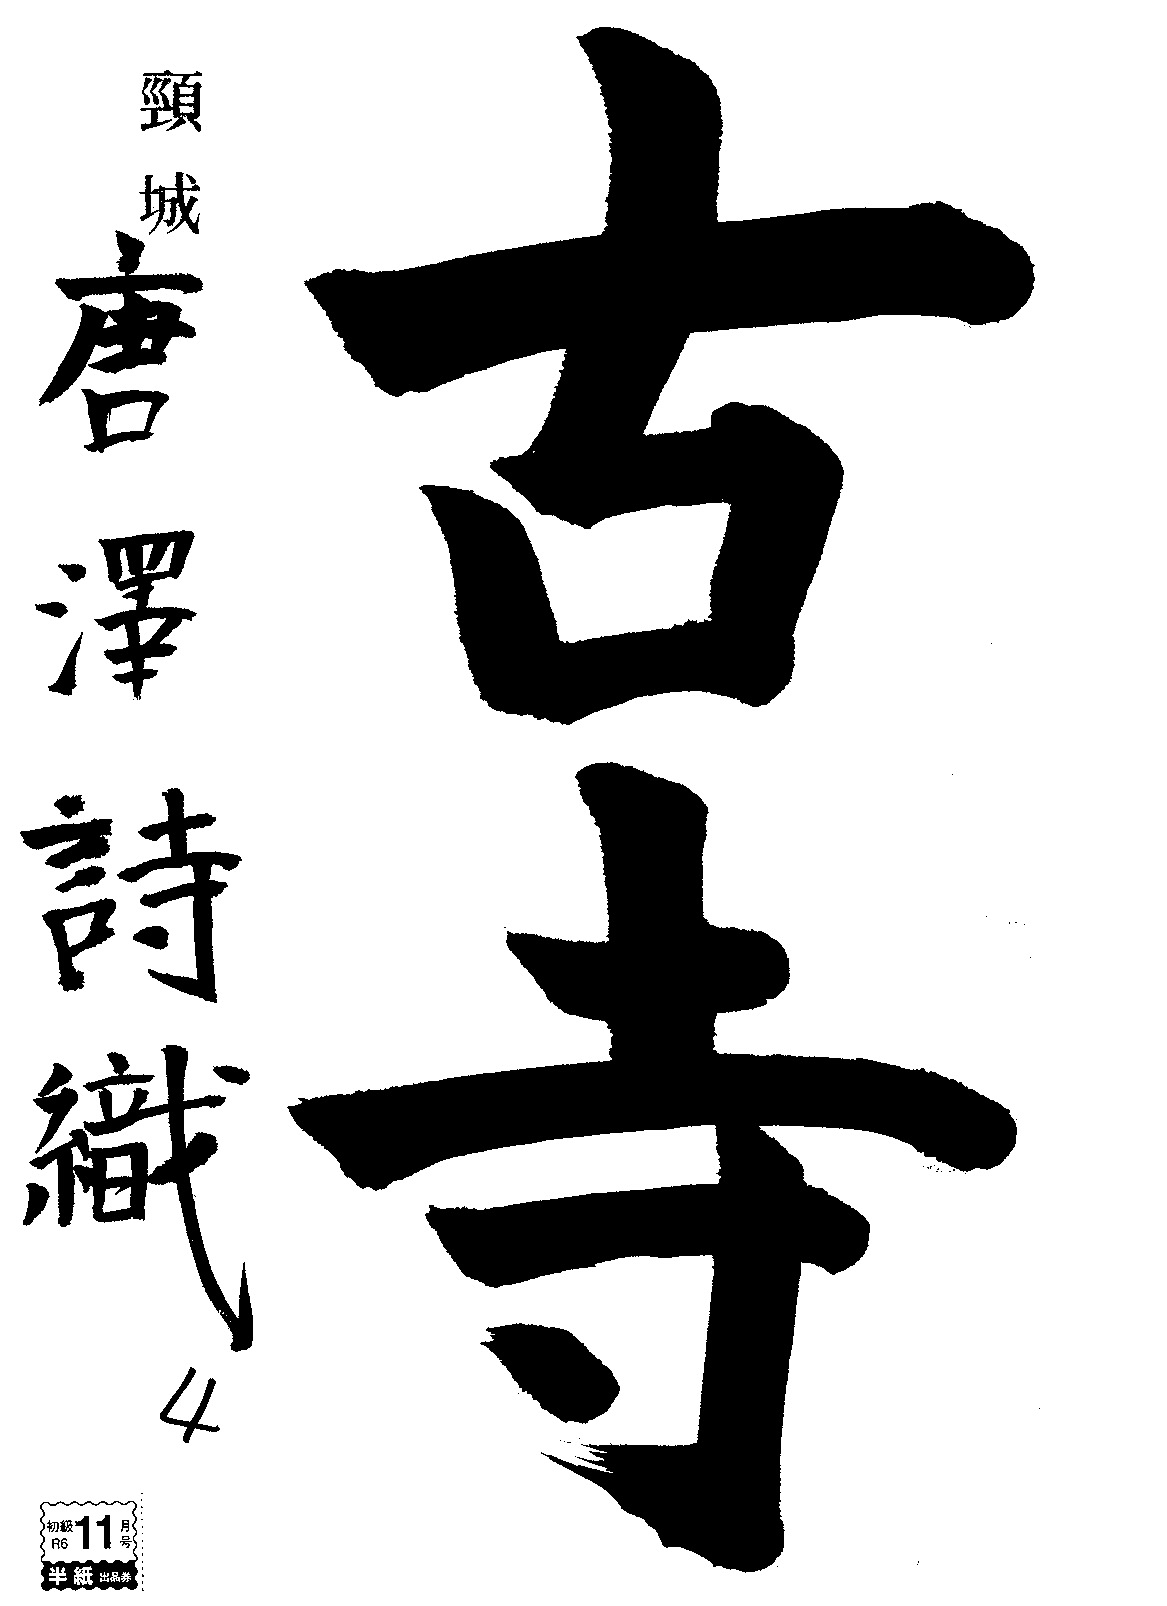 古寺
頸城
唐澤詩織
4
初級 R6 11月号
半紙 出品券